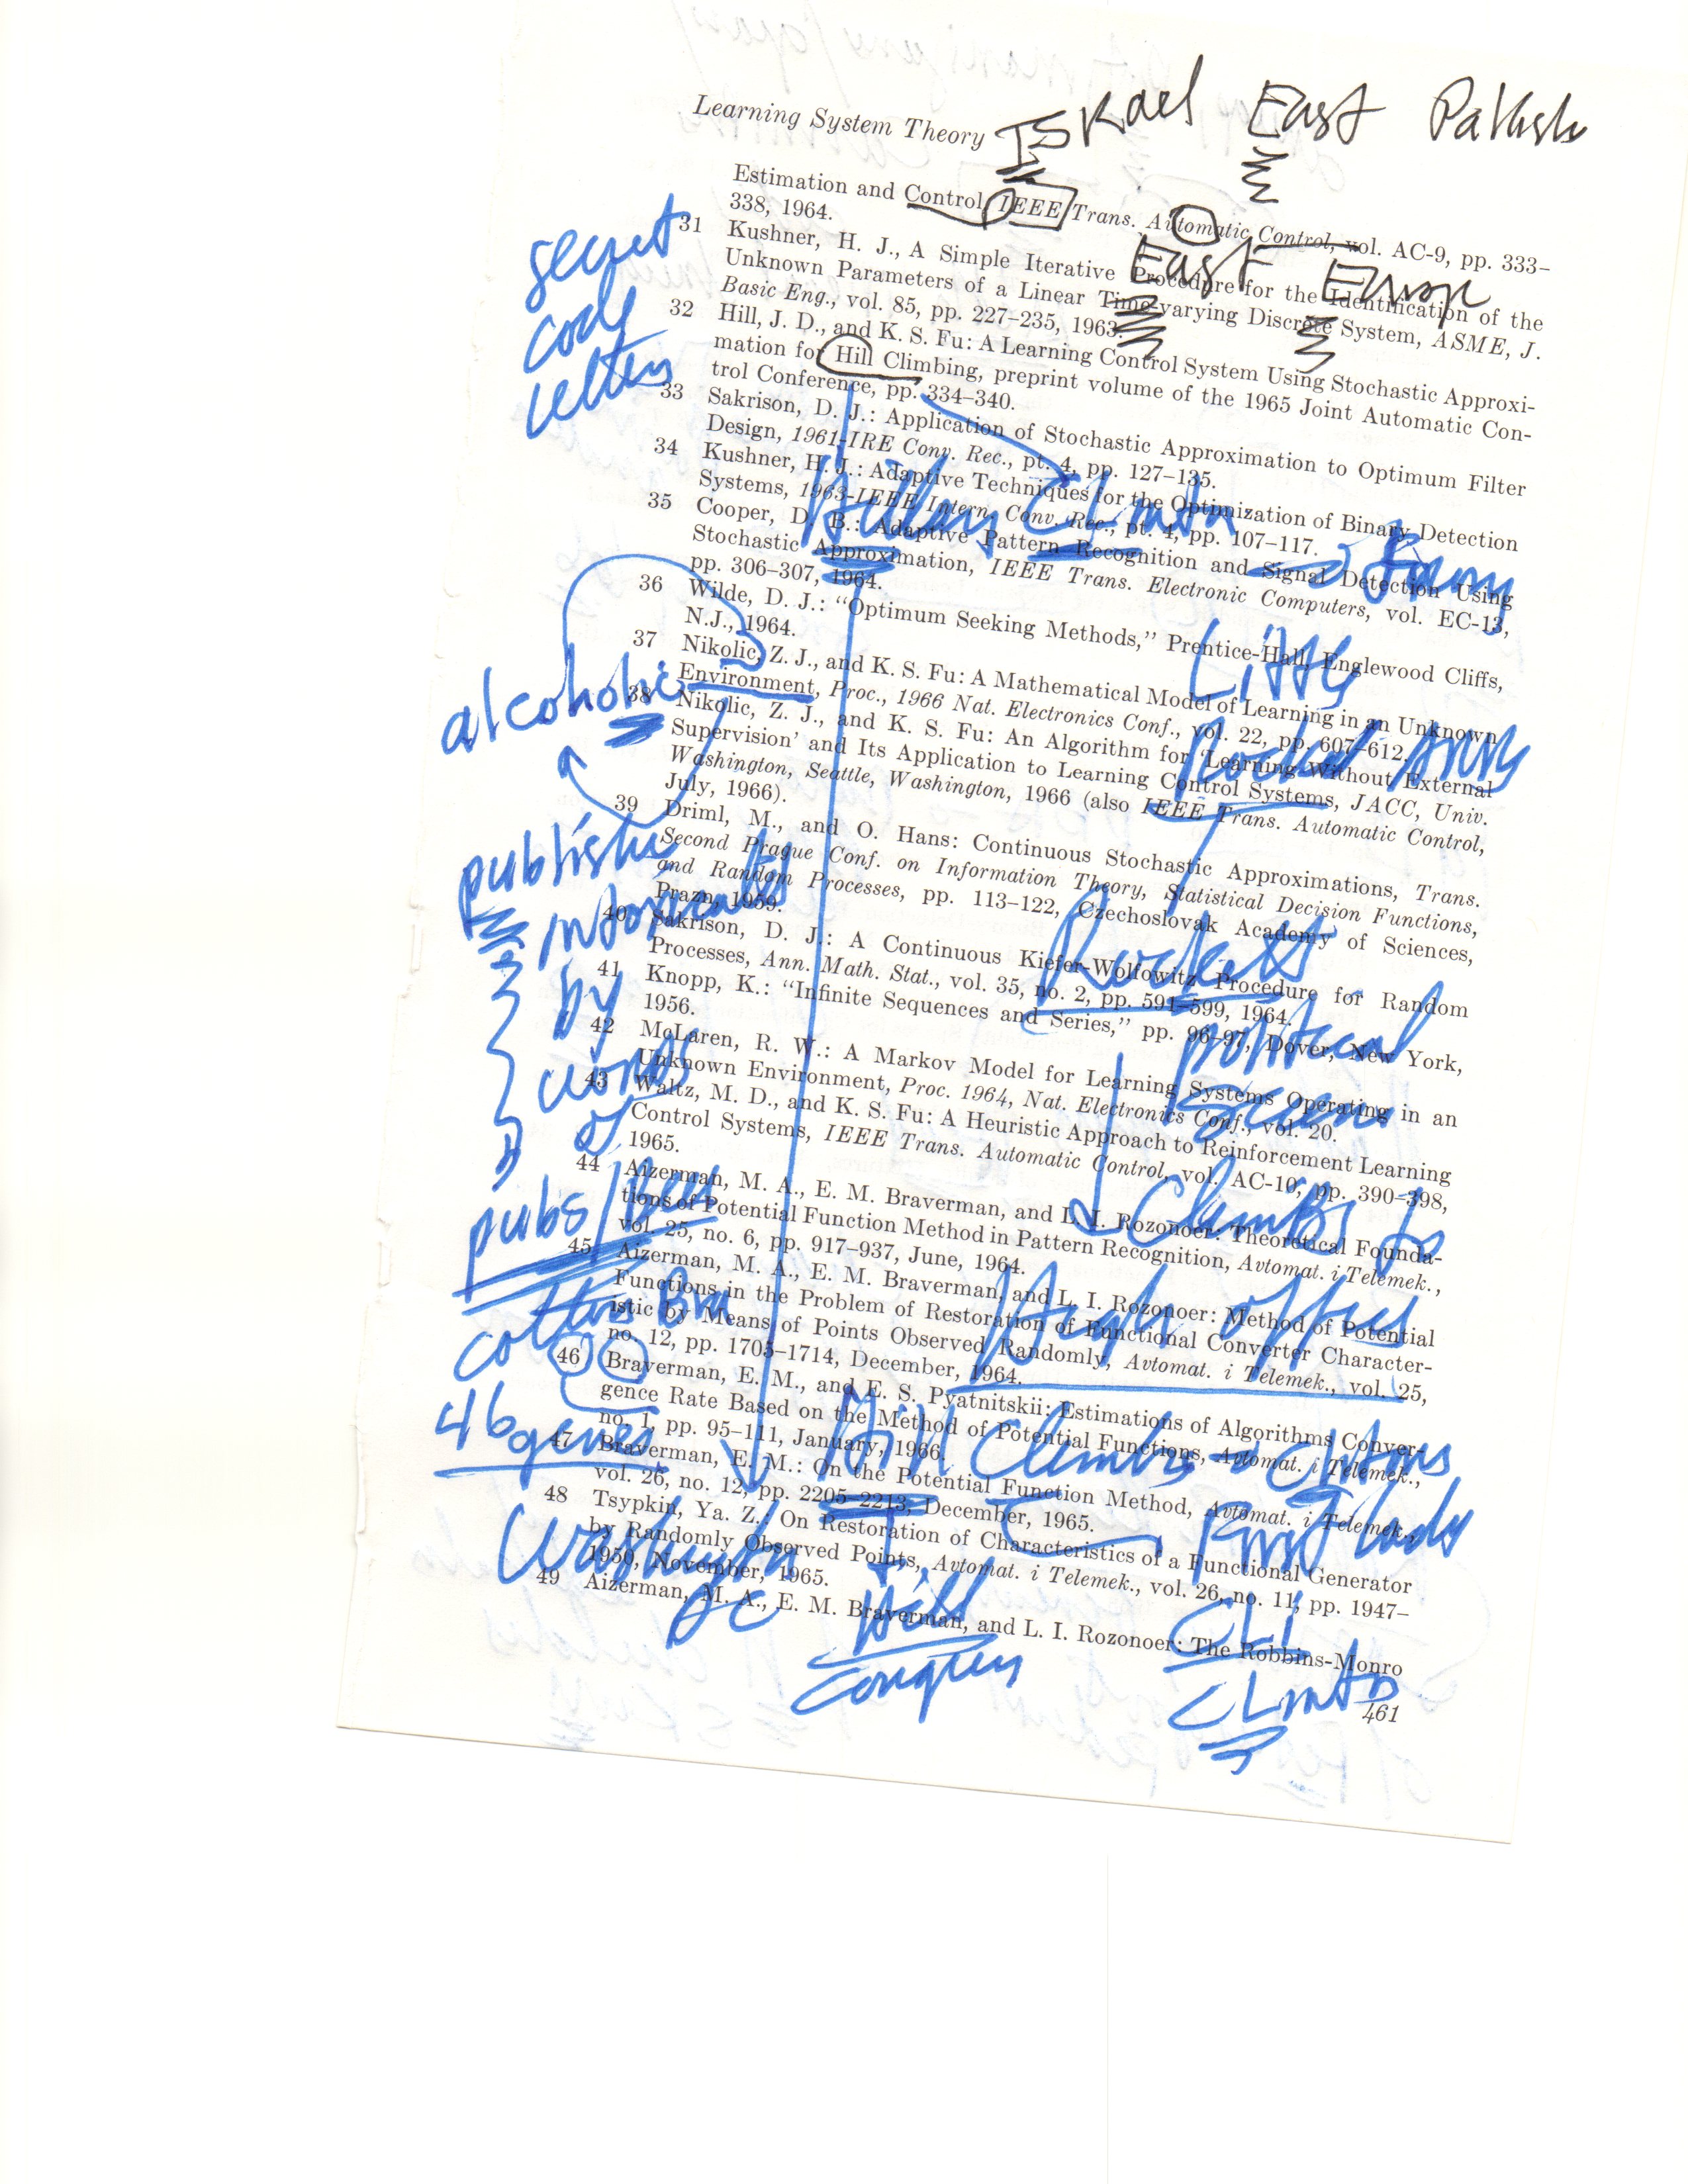 Israel East
Learning System Theory
Estimation and Control, IEEE Trans. Automatic Control, vol. AC-9, pp. 333–
338, 1964.
East Europe
31 Kushner, H. J., A Simple Iterative Procedure for the Identification of the
Unknown Parameters of a Linear Time-varying Discrete System, ASME, J.
Basic Eng., vol. 85, pp. 227–235, 1963.
secret
code
letters
32 Hill, J. D., and K. S. Fu: A Learning Control System Using Stochastic Approxi-
mation for Hill Climbing, preprint volume of the 1965 Joint Automatic Con-
trol Conference, pp. 334–340.
33 Sakrison, D. J.: Application of Stochastic Approximation to Optimum Filter
Design, 1961-IRE Conv. Rec., pt. 4, pp. 127–135.
34 Kushner, H. J.: Adaptive Techniques for the Optimization of Binary Detection
Systems, 1963-IEEE Intern. Conv. Rec., pt. 4, pp. 107–117.
Hillary Clinton
35 Cooper, D. B.: Adaptive Pattern Recognition and Signal Detection Using
Stochastic Approximation, IEEE Trans. Electronic Computers, vol. EC-13,
pp. 306–307, 1964.
36 Wilde, D. J.: “Optimum Seeking Methods,” Prentice-Hall, Englewood Cliffs,
N.J., 1964.
Little
37 Nikolic, Z. J., and K. S. Fu: A Mathematical Model of Learning in an Unknown
Environment, Proc., 1966 Nat. Electronics Conf., vol. 22, pp. 607–612.
alcoholic
38 Nikolic, Z. J., and K. S. Fu: An Algorithm for ‘Learning Without External
Supervision’ and Its Application to Learning Control Systems, JACC, Univ.
Washington, Seattle, Washington, 1966 (also IEEE Trans. Automatic Control,
July, 1966).
Rocket
39 Driml, M., and O. Hans: Continuous Stochastic Approximations, Trans.
Second Prague Conf. on Information Theory, Statistical Decision Functions,
and Random Processes, pp. 113–122, Czechoslovak Academy of Sciences,
Prazn, 1959.
40 Sakrison, D. J.: A Continuous Kiefer-Wolfowitz Procedure for Random
Processes, Ann. Math. Stat., vol. 35, no. 2, pp. 591–599, 1964.
Rockets
by
41 Knopp, K.: “Infinite Sequences and Series,” pp. 96–97, Dover, New York,
1956.
political
42 McLaren, R. W.: A Markov Model for Learning Systems Operating in an
Unknown Environment, Proc. 1964, Nat. Electronics Conf., vol. 20.
43 Waltz, M. D., and K. S. Fu: A Heuristic Approach to Reinforcement Learning
Control Systems, IEEE Trans. Automatic Control, vol. AC-10, pp. 390–398,
1965.
of
44 Aizerman, M. A., E. M. Braverman, and L. I. Rozonoer: Theoretical Founda-
tions of Potential Function Method in Pattern Recognition, Avtomat. i Telemek.,
vol. 25, no. 6, pp. 917–937, June, 1964.
pubs/
Climbs to
45 Aizerman, M. A., E. M. Braverman, and L. I. Rozonoer: Method of Potential
Functions in the Problem of Restoration of Functional Converter Character-
istic by Means of Points Observed Randomly, Avtomat. i Telemek., vol. 25,
no. 12, pp. 1705–1714, December, 1964.
High office
46 Braverman, E. M., and E. S. Pyatnitskii: Estimations of Algorithms Conver-
gence Rate Based on the Method of Potential Functions, Avtomat. i Telemek.,
no. 1, pp. 95–111, January, 1966.
46 genes
Hill Climbs
47 Braverman, E. M.: On the Potential Function Method, Avtomat. i Telemek.,
vol. 26, no. 12, pp. 2205–2213, December, 1965.
First Lady
48 Tsypkin, Ya. Z.: On Restoration of Characteristics of a Functional Generator
by Randomly Observed Points, Avtomat. i Telemek., vol. 26, no. 11, pp. 1947–
1950, November, 1965.
Washington
DC
Hill
49 Aizerman, M. A., E. M. Braverman, and L. I. Rozonoer: The Robbins-Monro
CLI
congress
Clinton
461